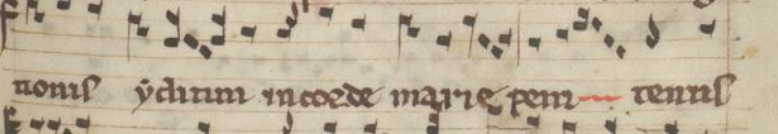 nonis ydirim in corde marie peni tentis